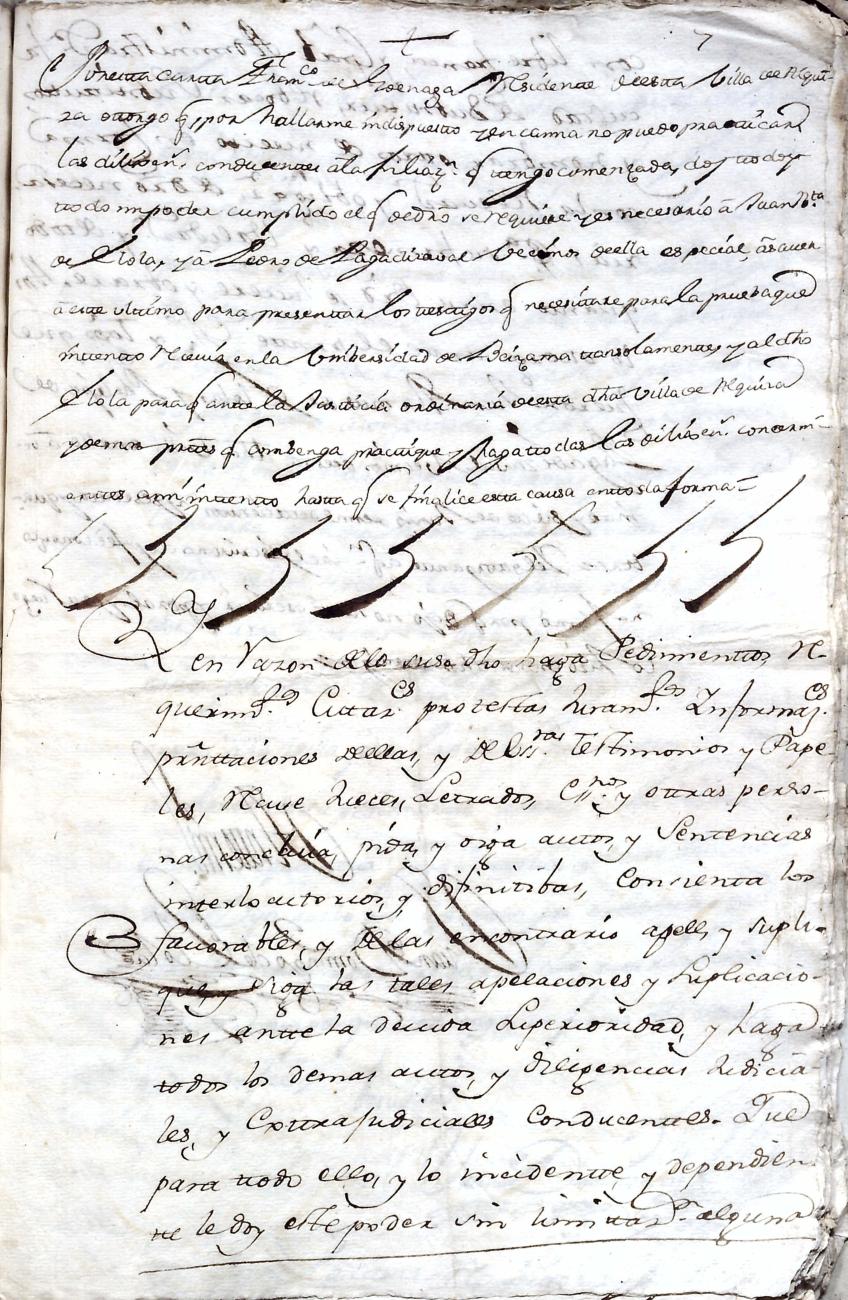 7
Por esta carta Franco de Arenaga Residente de esta Villa de Alqui-
za otorgo q, por hallarme indispuesto y en cama no puedo practicar
las dilixens conducentes a la filiazn q tengo comenzada, doy todo
mi poder cumplido el q de dro se requiere y es necesario a Juan Bta
de Elola, y a Pedro de Pagadizaval Vecinos de ella especial, a saver
a este ultimo para presentar los testigos q necesitare para la prueba que
intento Recivir en la Unibersidad de Beizama tansolamente, y al dho
Elola para q ante la Justicia ordinaria de esta dha Villa de Alquiza
y demas partes q combenga practique y haga todas las dilixens concerni-
entes a mi intento hasta q se finalice esta causa en toda forma=
Y en razon de lo suso dho haga Pedimientos, Re-
querimtos Cittazes protestas Juramtos Informazes
presnttaciones dellas, y de Essras Testimonios y Pape-
les, Recuse Jueces, Letrados, Essnos y ottras perso-
nas concluia, pida, y oiga autos, y Sentencias
interlocutorios, y difinitibas, consienta los
favorables, y de las encontrario apele, y supli-
que, y siga las tales apelaciones y suplicacio-
nes antte la devida superioridad, y haga
todos los demas autos, y diligencias Judicia-
les, y Exttrajudiciales conducenttes. Que
para ttodo ello, y lo incidentte, y dependien-
tte le doy este poder sin limittazn alguna